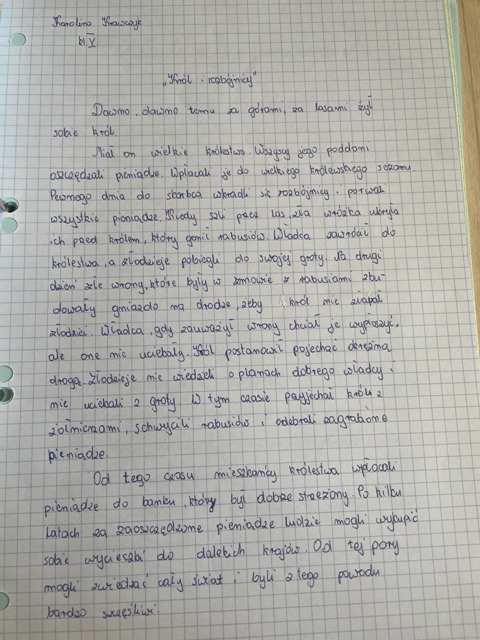 Karolina Krawczyk
kl V
„Król i rozbójnicy"
Dawno, dawno temu za górami, za lasami żył
sobie król.
Miał on wielkie królestwo. Wszyscy jego poddani
oszczędzali pieniądze. Wpłacali je do wielkiego królewskiego
Pewnego dnia do skarbca wkradli się rozbójnicy i porwali
wszystkie pieniądze. Kiedy szli przez las, zła wróżka ukryła
ich przed królem, który gonił rabusiów. Władca zawrócił do
królestwa, a złodzieje pobiegli do swojej groty. Na drugi
dzień złe wrony, które były w zmowie z rabusiami zbu-
dowały gniazdo na drodze, żeby król nie złapał
złodziei. Władca, gdy zauważył wrony chciał je wypłoszyć,
ale one nie uciekały. Król postanowił pojechać okrężną
drogą. Złodzieje nie wiedzieli o planach dobrego władcy i
nie uciekali z groty. W tym czasie przyjechał król z
żołnierzami, schwycili rabusiów i odebrali zagrabione
pieniądze.
Od tego czasu mieszkańcy królestwa wpłacali
pieniądze do banku, który był dobrze strzeżony. Po kilku
latach za zaoszczędzone pieniądze ludzie mogli wykupić
sobie wycieczki do dalekich krajów. Od tej pory
mogli zwiedzać cały świat i byli z tego powodu
bardzo szczęśliwi.